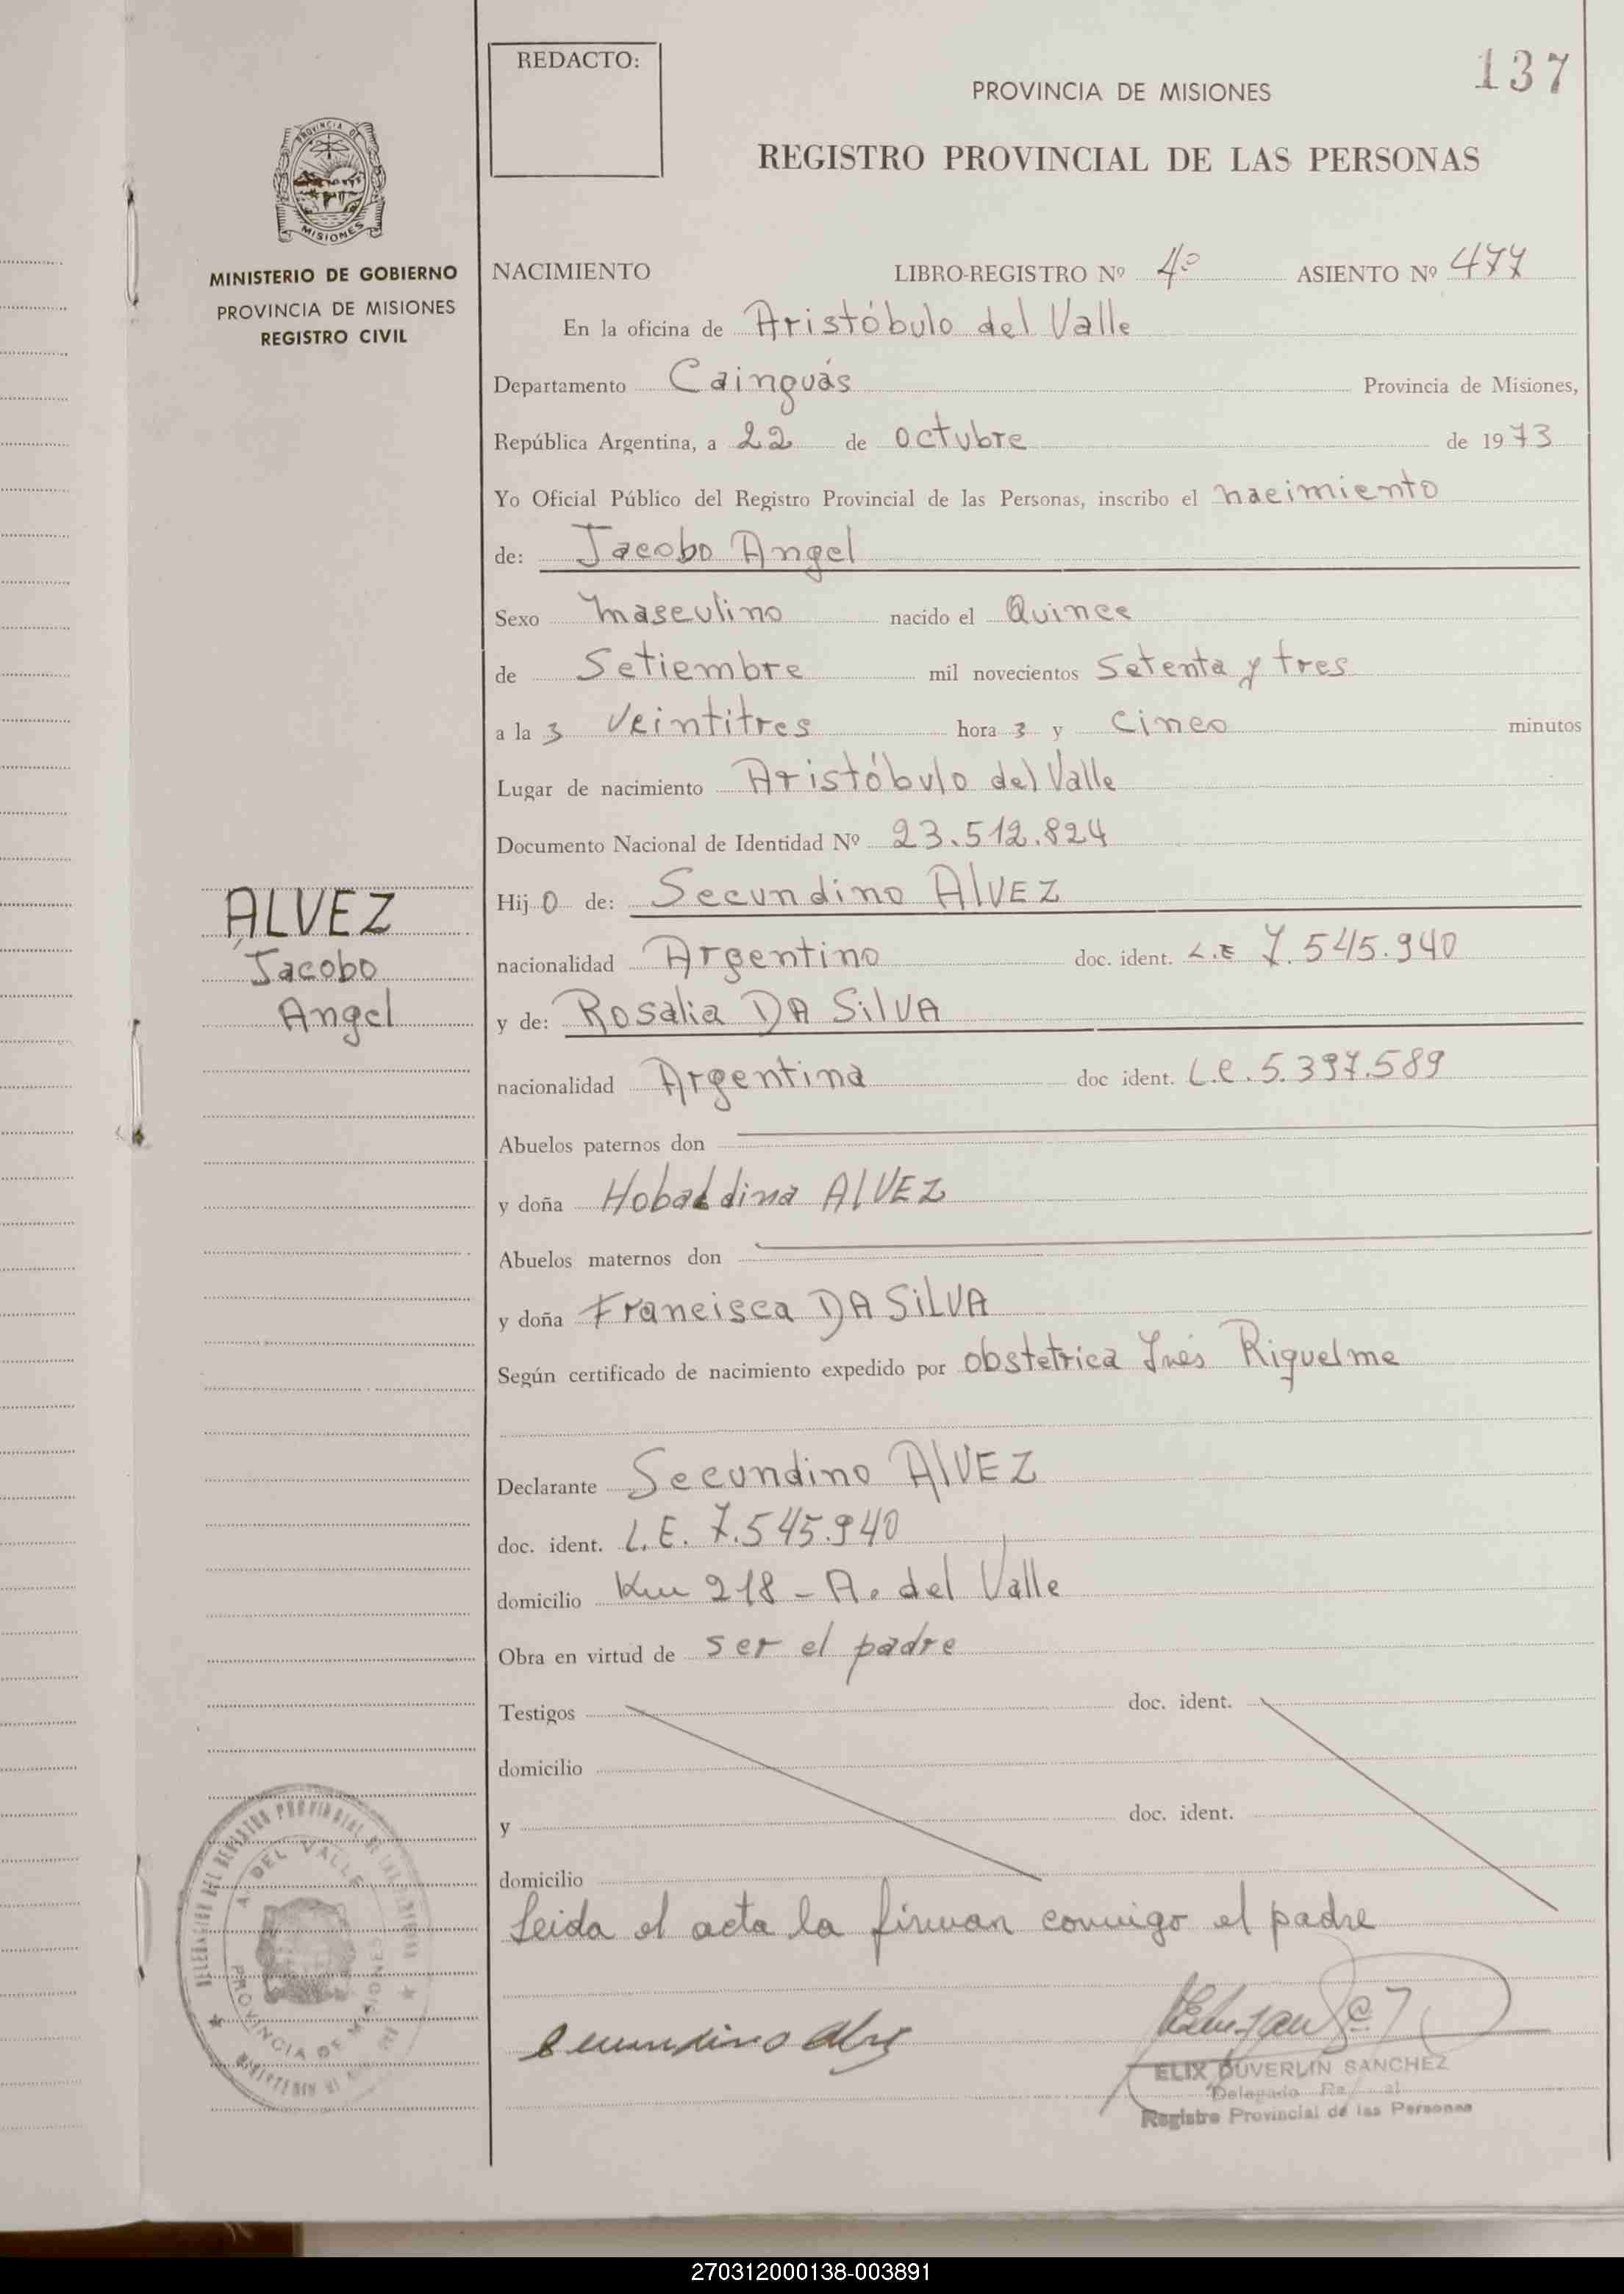 REDACTO:
137
PROVINCIA DE MISIONES
REGISTRO PROVINCIAL DE LAS PERSONAS
PROVINCIA DE
MISIONES
MINISTERIO DE GOBIERNO
PROVINCIA DE MISIONES
REGISTRO CIVIL
NACIMIENTO LIBRO-REGISTRO Nº 4º ASIENTO Nº 477
En la oficina de Aristóbulo del Valle
Departamento Cainguás Provincia de Misiones,
República Argentina, a 22 de octubre de 1973
Yo Oficial Público del Registro Provincial de las Personas, inscribo el nacimiento
de: Jacobo Angel
Sexo masculino nacido el Quince
de Setiembre mil novecientos Setenta y tres
a la s veintitres hora s y cinco minutos
Lugar de nacimiento Aristóbulo del Valle
Documento Nacional de Identidad Nº 23.512.824
ALVEZ
Jacobo
Angel
Hij o de: Secundino AlVEZ
nacionalidad Argentino doc. ident. L.E 7.545.940
y de: Rosalia DA SilVA
nacionalidad Argentina doc ident. L.C. 5.397.589
Abuelos paternos don
y doña Hobaldina AlVEZ
Abuelos maternos don
y doña Francisca DA SiLVA
Según certificado de nacimiento expedido por obstetrica Inés Riquelme
Declarante Secundino AlVEZ
doc. ident. L.E. 7.545.940
domicilio Km 218 - A. del Valle
Obra en virtud de ser el padre
Testigos doc. ident.
domicilio
y doc. ident.
domicilio
Leida el acta la firman conmigo el padre
DELEGACION DEL REGISTRO PROVINCIAL DE LAS PERSONAS
A. DEL VALLE
PROVINCIA DE MISIONES
ELIX DUVERLIN SANCHEZ
Delegado
Registro Provincial de las Personas
270312000138-003891